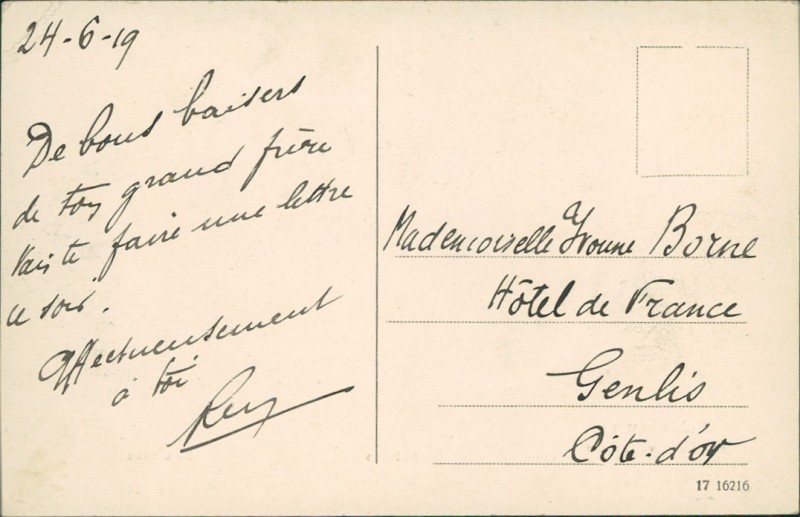 24-6-19
De bons baisers
de ton grand frère
Vais te faire une lettre
ce soir.
Affectueusement
à toi
Mademoiselle Yvonne Borne
Hôtel de France
Genlis
Côte-d'or
17 16216